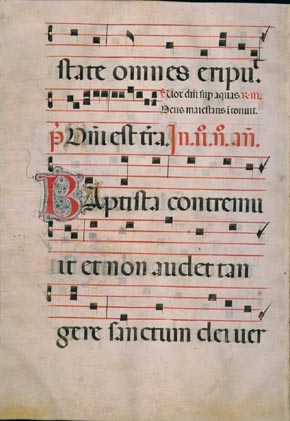 state omnes eripu.
Uox dñi sup aquas. R. m.
Deus maiestatis ītonuit.
Dñi est tr̄a. In. ii. n̄. an̄.
Baptista contremu
it et non audet tan
gere sanctum dei uer